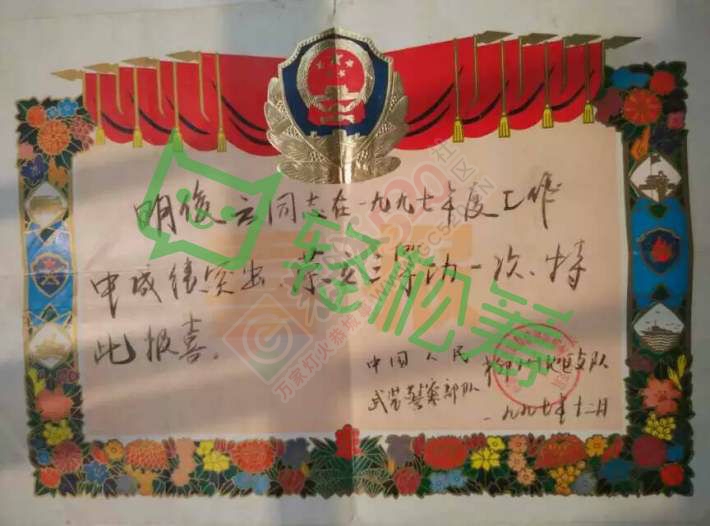 明俊云同志在一九九七年度工作
中成绩突出、荣立三等功一次、特
此报喜。
中国人民
武装警察部队
支队
一九九七年十二月
轻松寿
万家灯火恭城